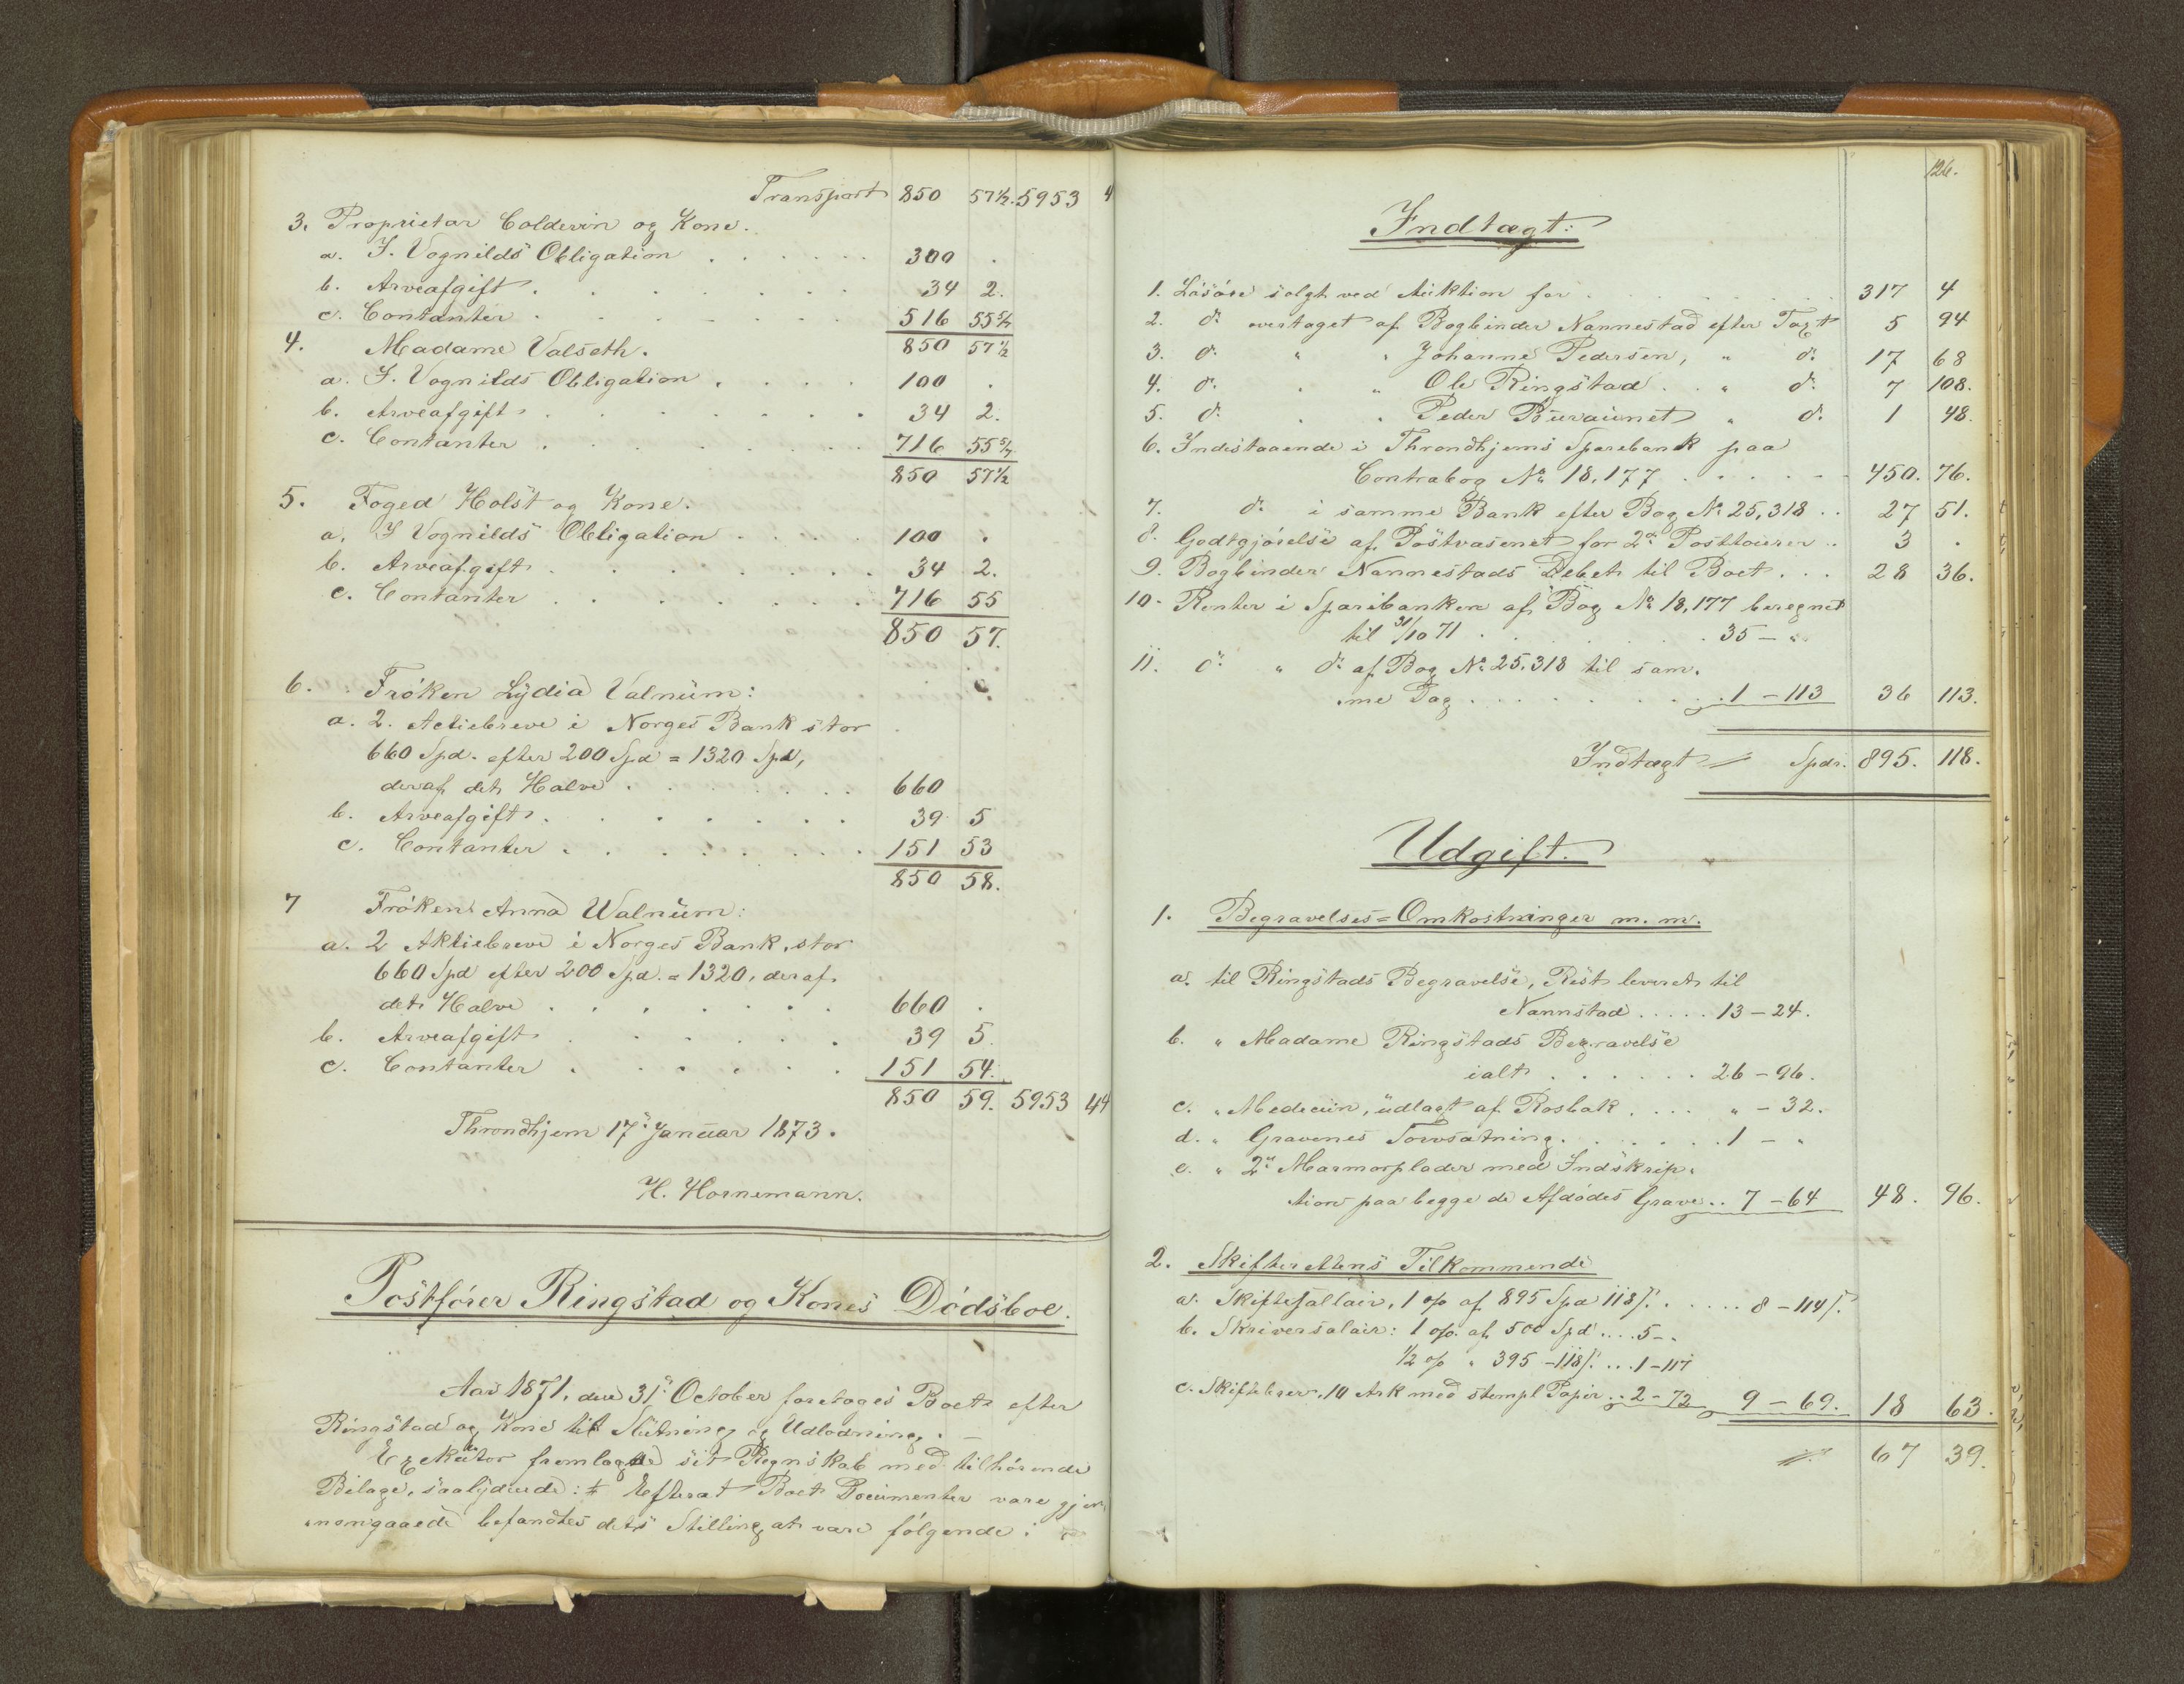 Transport 850 57½. 5953 4
3. Proprietær Coldevin og Kone.
a. J. Vognilds Obligation . . . . . . 300 .
b. Arveafgift . . . . . . . 34 2.
c. Contanter . . . . . . . 516 55 2/4
850 57½
4. Madame Valseth.
a. J. Vognilds Obligation . . . . 100 .
b. Arveafgift . . . . . . . 34 2.
c. Contanter . . . . . . . 716 55 2/4
850 57½
5. Foged Holst og Kone.
a. J Vognilds Obligation . . . . 100 .
b. Arveafgift . . . . . . . 34 2.
c. Contanter . . . . . . . 716 55
850 57.
6. Frøken Lydia Valnum:
a. 2. Actiebreve i Norges Bank stor
660 Spd. efter 200 Spd = 1320 Spd,
deraf det Halve . . . . . . 660
b. Arveafgift . . . . . . . 39 5
c. Contanter . . . . . . . 151 53
850 58.
7 Frøken Anna Walnum:
a. 2 Aktiebreve i Norges Bank, stor
660 Spd efter 200 Spd. = 1320, deraf
det Halve . . . . . . . 660 .
b. Arveafgift . . . . . . 39 5.
c. Contanter . . . . . . 151 54.
850 59. 5953 44
Throndhjem 17de Januar 1873.
H. Hornemann.
Postfører Ringstad og Kones Dødsboe.
Aar 1871, den 31te October foretoges Boet efter
Ringstad og Kone til Slutning og Udlodning. –
Exekutor fremlagde sit Regnskab med tilhørende
Bilage, saalydende: Efterat Boets Documenter vare gjen
nemgaaede befandtes dets Stilling at være følgende:
126.
Indtægt:
1. Løsøre solgt ved Auktion for . . . . . . . . 317 4
2. do overtaget af Bogbinder Nannestad efter Taxt 5 94
3. do " " Johanne Pedersen, " do 17 68
4. do . " Ole Ringstad . . " do 7 108.
5. do . . Peder Buraunet " do 1 48.
6. Indestaaende i Throndhjems Sparebank paa
Contrabog No 18,177 . . . . . . 450. 76.
7. do i samme Bank efter Bog No 25,318 . . 27 51.
8. Godtgjørelse af Postvæsenet for 2de Posttouren . . 3 .
9. Bogbinder Nannestads Debet til Boet . . . 28 36.
10. Renter i Sparebanken af Bog No 18,177 beregnet
til 31/10 71 . . . . . . . . 35 – "
11. do " do af Bog No 25,318 til sam-
me Dag . . . . . . . . 1 – 113 36 113.
Indtægt Spdr. 895. 118.
Udgift.
1. Begravelses=Omkostninger m. m.
a. til Ringstads Begravelse, Rest leveret til
Nannstad . . . . . 13 – 24.
b. " Madame Ringstads Begravelse
ialt . . . . . . . 26 – 96.
c. " Medecin, udlagt af Rosbak . . . . " – 32.
d. " Gravenes Torvsætning . . . . . . . 1 – "
e. " 2de Marmorplader med Indskrip-
tion paa begge de Afdødes Grave . . 7 – 64 48. 96.
2. Skifterettens Tilkommende
a. Skiftesallair, 1 % af 895 Spd 118 ß . . . . . 8 – 114 ß.
b. Skriversalair: 1 % af 500 Spd . . . . 5 – "
½ % " 395 – 118 ß. . . . 1 – 117
c. Skiftebrev, 10 Ark med stempl Papir . . 2 – 72 9 – 69. 18 63.
67 39.